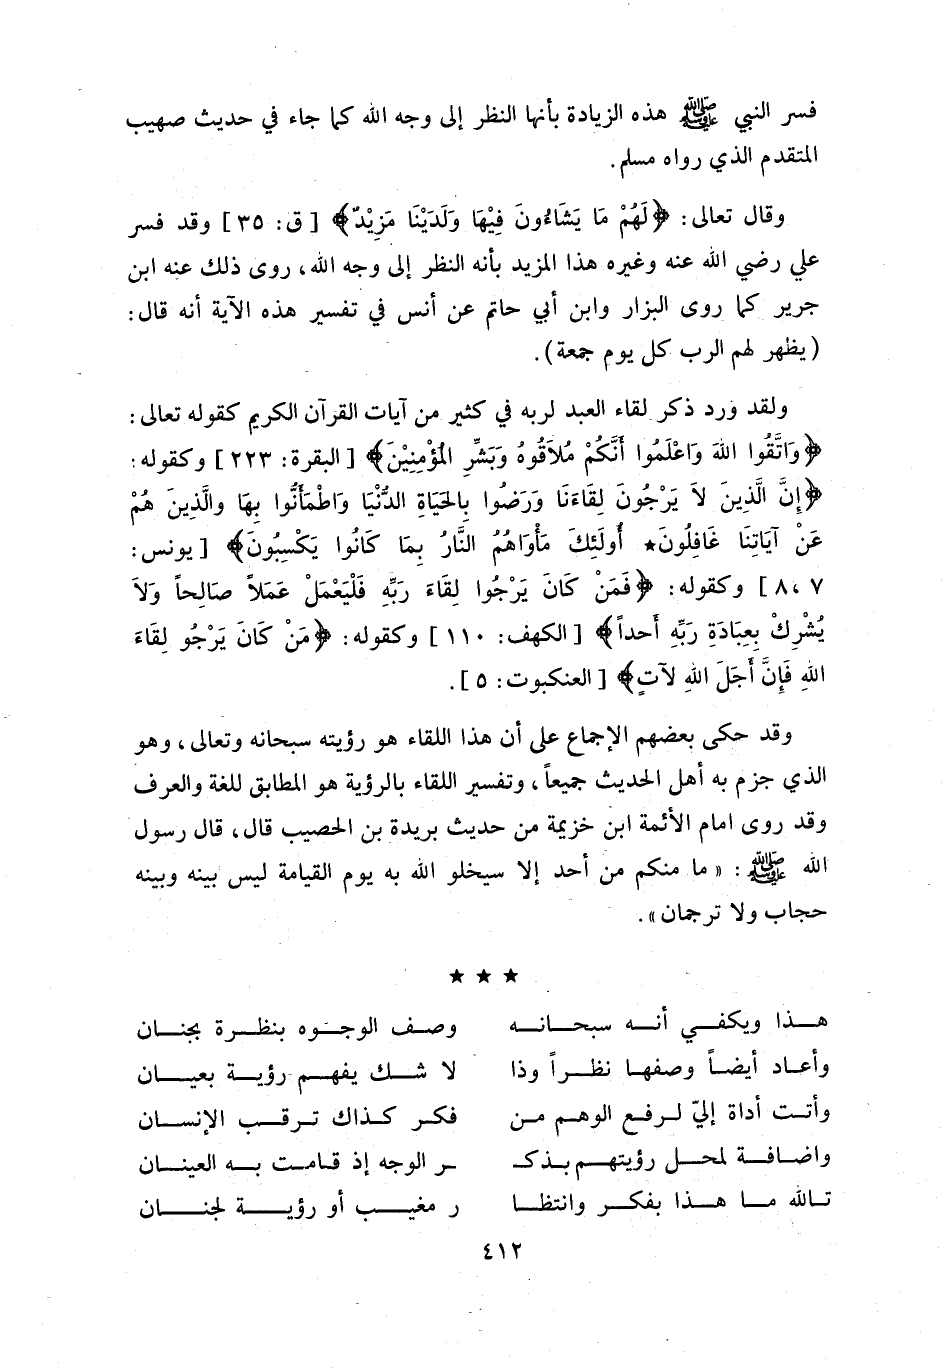 فسر النبي ﷺ هذه الزيادة بأنها النظر إلى وجه الله كما جاء في حديث صهيب
المتقدم الذي رواه مسلم.
وقال تعالى: ﴿لَهُمْ مَا يَشَاءُونَ فِيْهَا وَلَدَيْنَا مَزِيْدٌ﴾ [ق: ٣٥] وقد فسر
علي رضي الله عنه وغيره هذا المزيد بأنه النظر إلى وجه الله، روى ذلك عنه ابن
جرير كما روى البزار وابن أبي حاتم عن أنس في تفسير هذه الآية أنه قال:
(يظهر لهم الرب كل يوم جمعة).
ولقد ورد ذكر لقاء العبد لربه في كثير من آيات القرآن الكريم كقوله تعالى:
﴿وَاتَّقُوا اللهَ وَاعْلَمُوا أَنَّكُمْ مُلاَقُوهُ وَبَشِّرِ المُؤْمِنِيْنَ﴾ [البقرة: ٢٢٣] وكقوله:
﴿إِنَّ الَّذِينَ لاَ يَرْجُونَ لِقَاءَنَا وَرَضُوا بِالحَيَاةِ الدُّنْيَا وَاطْمَأَنُّوا بِهَا والَّذِينَ هُمْ
عَنْ آيَاتِنَا غَافِلُونَ★ أُولَئِكَ مَأْوَاهُمُ النَّارُ بِمَا كَانُوا يَكْسِبُونَ﴾ [يونس:
٧، ٨] وكقوله: ﴿فَمَنْ كَانَ يَرْجُوا لِقَاءَ رَبِّهِ فَلْيَعْمَلْ عَمَلاً صَالِحاً وَلاَ
يُشْرِكْ بِعِبَادَةِ رَبِّهِ أَحداً﴾ [الكهف: ١١٠] وكقوله: ﴿مَنْ كَانَ يَرْجُو لِقَاءَ
اللهِ فَإِنَّ أَجَلَ اللهِ لآتٍ﴾ [العنكبوت: ٥].
وقد حكى بعضهم الإجماع على أن هذا اللقاء هو رؤيته سبحانه وتعالى، وهو
الذي جزم به أهل الحديث جميعاً، وتفسير اللقاء بالرؤية هو المطابق للغة والعرف
وقد روى امام الأئمة ابن خزيمة من حديث بريدة بن الحصيب قال، قال رسول
الله ﷺ: «ما منكم من أحد إلا سيخلو الله به يوم القيامة ليس بينه وبينه
حجاب ولا ترجمان».
★ ★ ★
هذا ويكفي أنه سبحانه وصف الوجوه بنظرة بجنان
وأعاد أيضاً وصفها نظراً وذا لا شك يفهم رؤية بعيان
وأتت أداة إليّ لرفع الوهم من فكر كذاك ترقب الإنسان
واضافة لمحل رؤيتهم بذكـ ـر الوجه إذ قامت به العينان
تالله ما هذا بفكر وانتظا ر مغيب أو رؤية لجنان
٤١٢